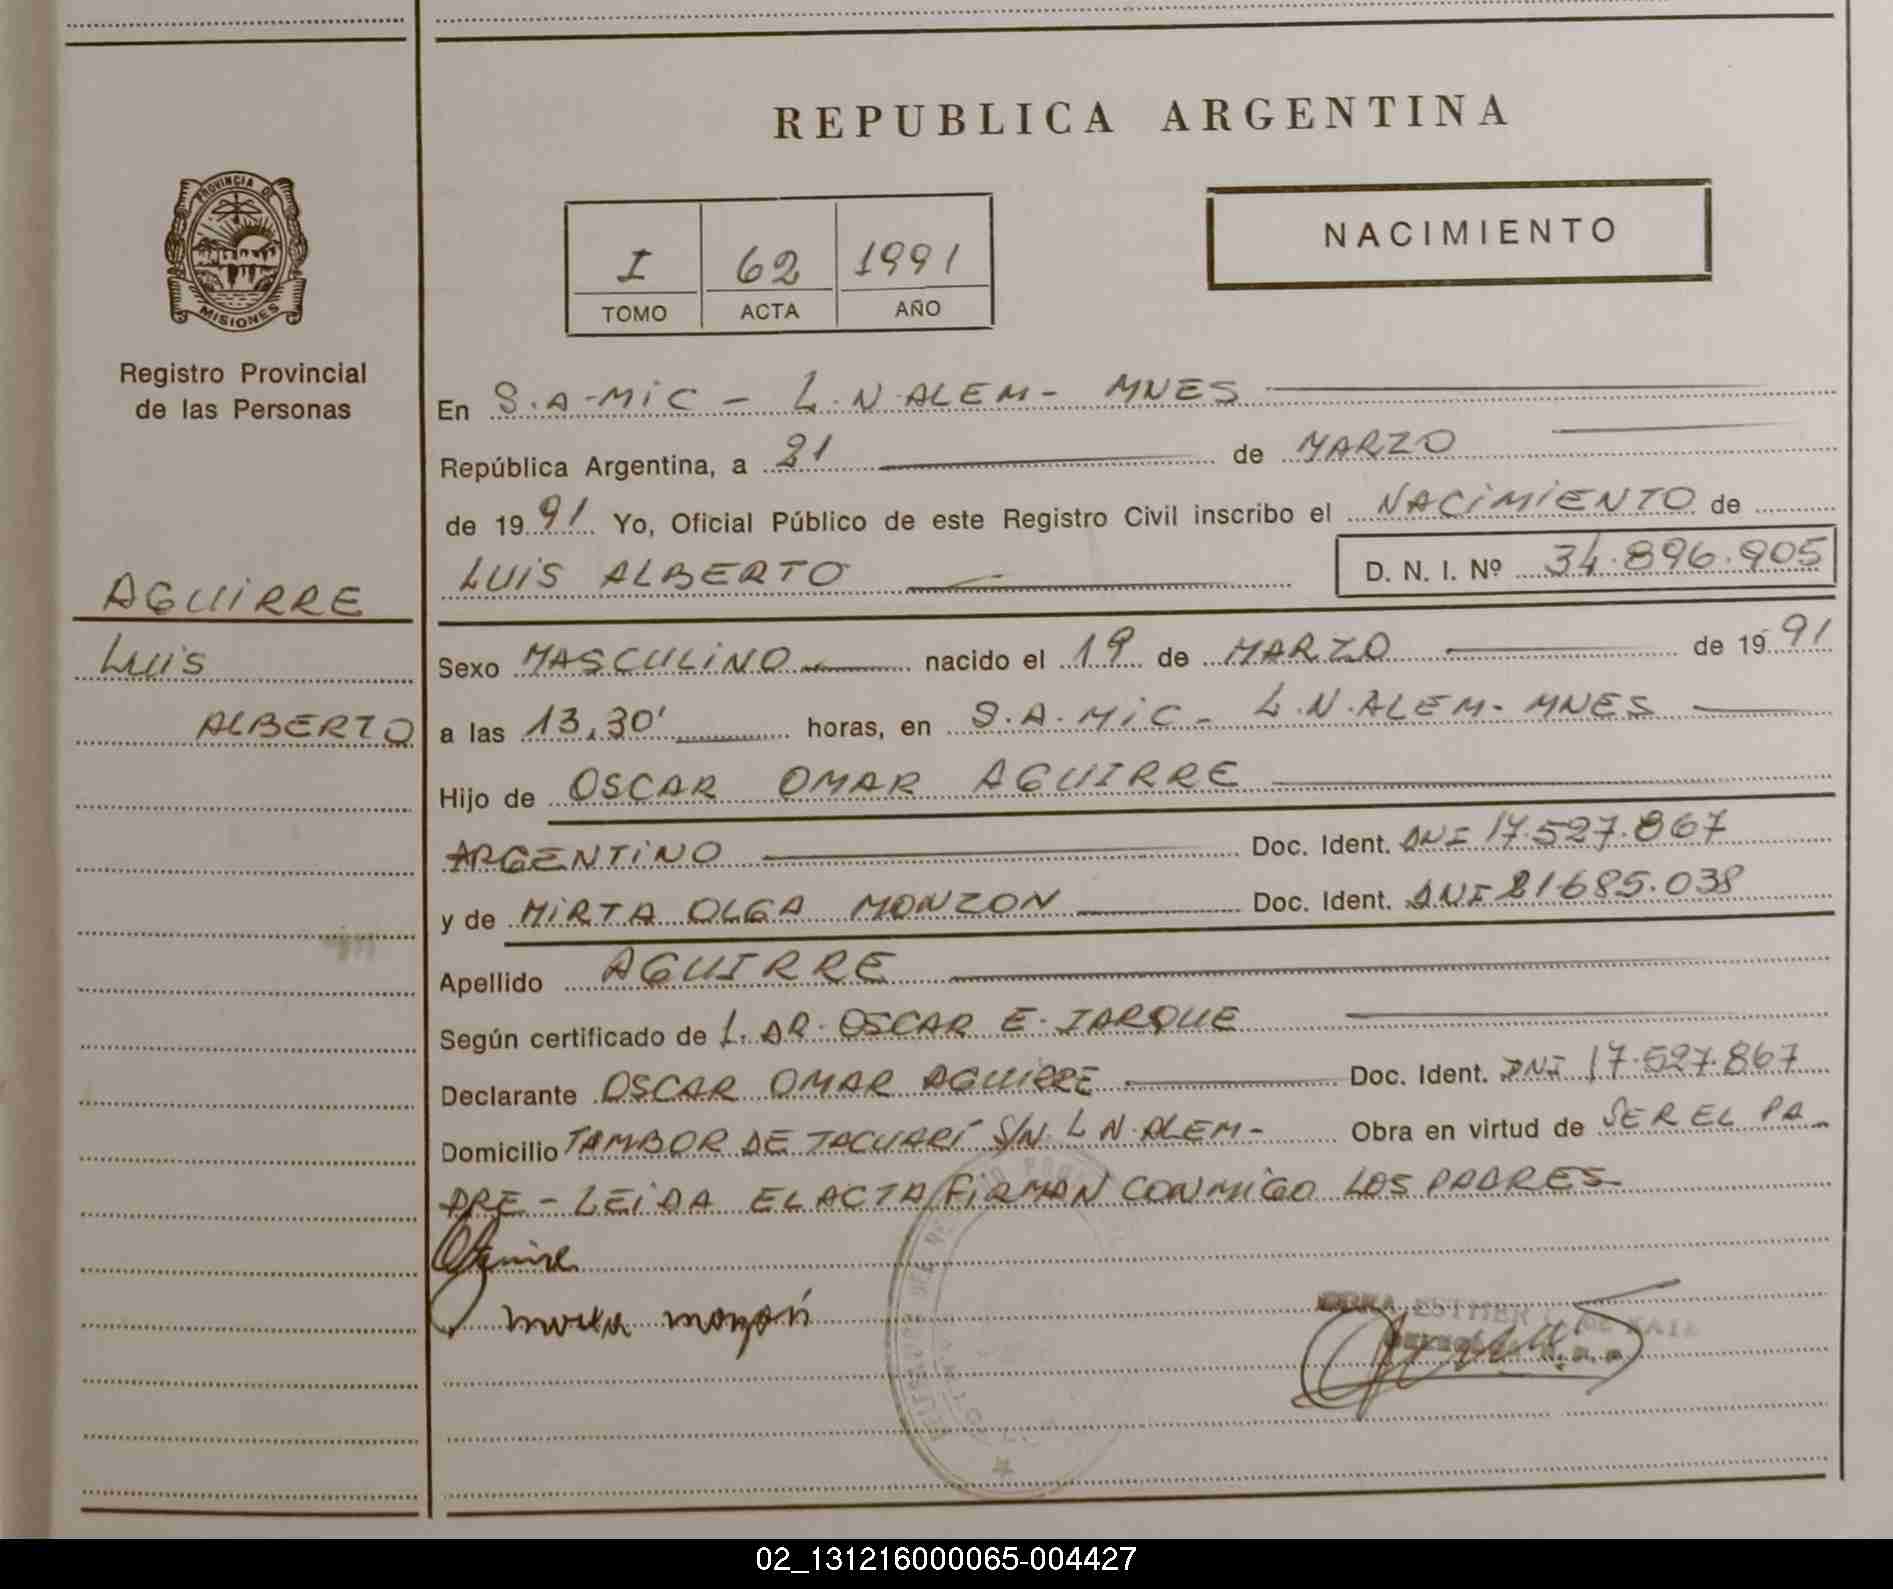 REPUBLICA ARGENTINA
PROVINCIA DE
MISIONES
Registro Provincial
de las Personas
I 62 1991
TOMO ACTA AÑO
NACIMIENTO
AGUIRRE
LUIS
ALBERTO
En S.A-MIC - L.N.ALEM- MNES
República Argentina, a 21 de MARZO
de 1991 Yo, Oficial Público de este Registro Civil inscribo el NACIMIENTO de
LUIS ALBERTO D. N. I. Nº 34.896.905
Sexo MASCULINO nacido el 19 de MARZO de 1991
a las 13,30' horas, en S.A.MIC - L.N.ALEM- MNES
Hijo de OSCAR OMAR AGUIRRE
ARGENTINO Doc. Ident. DNI 17.527.867
y de MIRTA OLGA MONZON Doc. Ident. DNI 21.685.038
Apellido AGUIRRE
Según certificado de L. DR. OSCAR E. JARQUE
Declarante OSCAR OMAR AGUIRRE Doc. Ident. DNI 17.527.867
Domicilio TAMBOR DE TACUARÍ S/N. L N. ALEM- Obra en virtud de SER EL PA-
DRE - LEIDA EL ACTA FIRMAN CONMIGO LOS PADRES
02_131216000065-004427